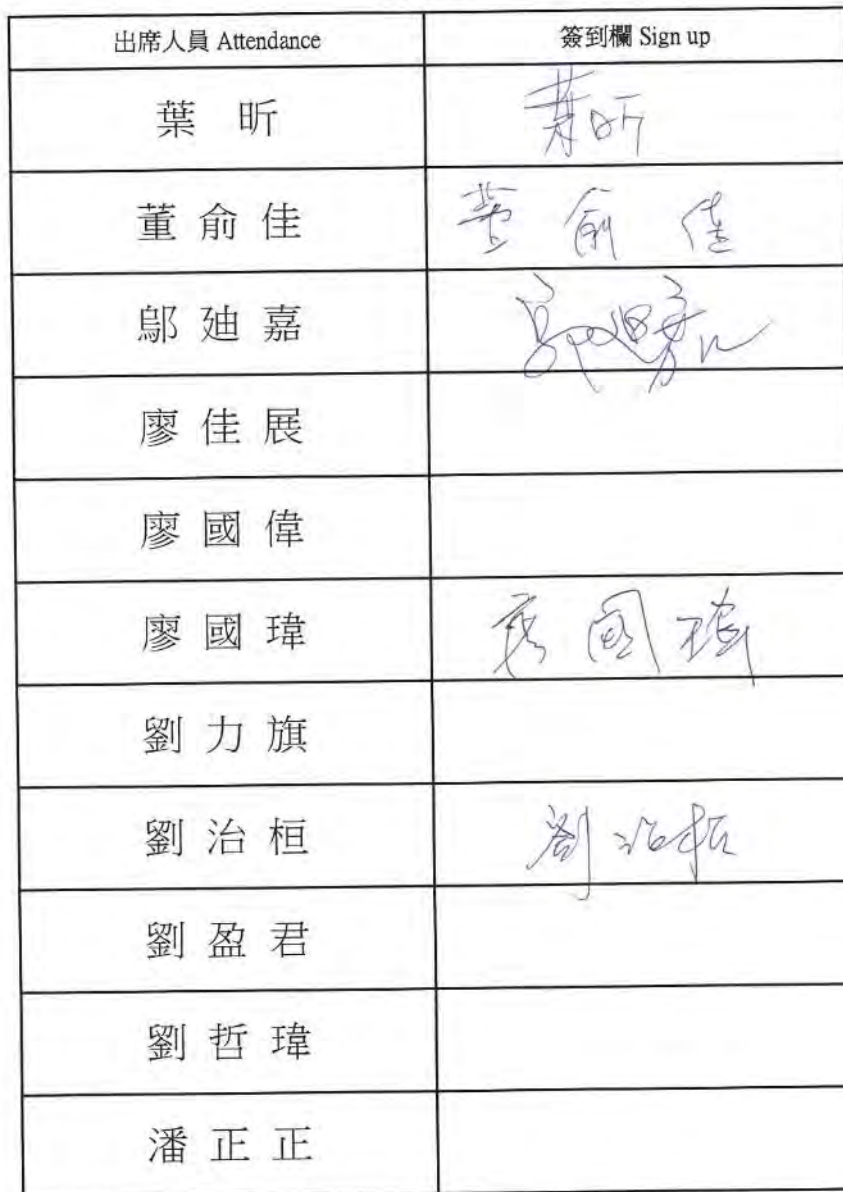 出席人員 Attendance 簽到欄 Sign up
葉昕 葉昕
董俞佳 董俞佳
鄔廸嘉 鄔廸嘉
廖佳展
廖國偉
廖國瑋 廖國瑋
劉力旗
劉治桓 劉治桓
劉盈君
劉哲瑋
潘正正